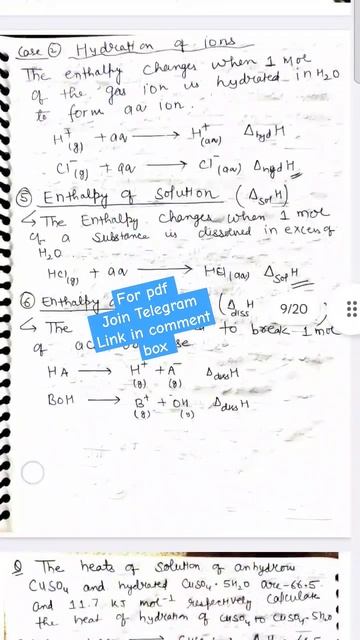 Case ② Hydration of ions
The enthalpy changes when 1 mol
of the gas ion is hydrated in H2O
to form aq ion.
H+(g) + aq → H+(aq) ΔhydH
Cl-(g) + aq → Cl-(aq) ΔhydH
⑤ Enthalpy of Solution (ΔsolH)
↳ The Enthalpy Changes when 1 mol
of a substance is dissolved in excess of
H2O
HCl(g) + aq → HCl(aq) ΔsolH
⑥ Enthalpy (ΔdissH
9/20
For pdf
Join Telegram
Link in comment
box
↳ The to break 1 mol
of ac
HA → H+(g) + A-(g) ΔdissH
BOH → B+(g) + OH(g) ΔdissH
Q The heats of solution of anhydrous
CuSO4 and hydrated CuSO4·5H2O are -66.5
and 11.7 kJ mol-1 respectively calculate
the heat of hydration of CuSO4 to CuSO4·5H2O